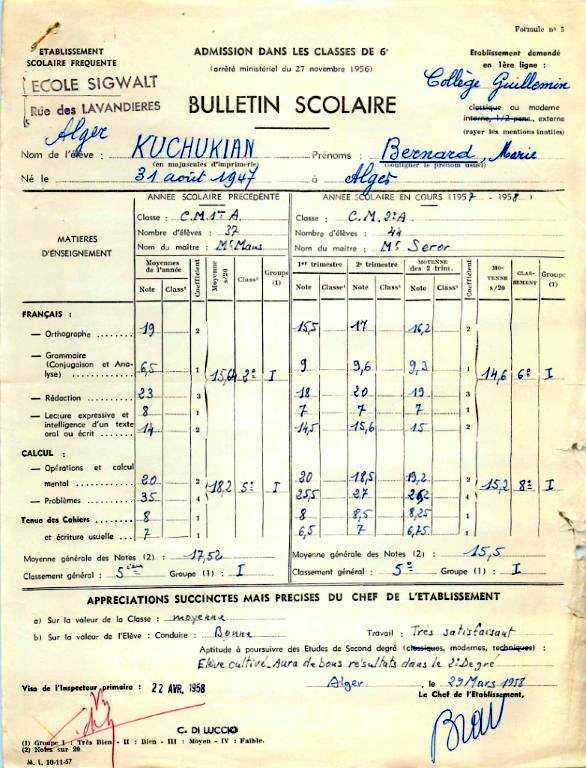 Formule nº 5
ETABLISSEMENT
SCOLAIRE FREQUENTE
ECOLE SIGWALT
Rue des LAVANDIERES
Alger
ADMISSION DANS LES CLASSES DE 6e
(arrêté ministériel du 27 novembre 1956)
BULLETIN SCOLAIRE
Etablissement demandé
en 1ère ligne :
Collège Guillemin
classique ou moderne
interne, 1/2 pens., externe
(rayer les mentions inutiles)
Nom de l'élève : KUCHUKIAN Prénoms : Bernard, Marie
(en majuscules d'imprimerie) (souligner le prénom usuel)
Né le 31 août 1947 à Alger
MATIERES
D'ENSEIGNEMENT
ANNÉE SCOLAIRE PRÉCÉDENTE
Classe : C.M.1re A
Nombre d'élèves : 37
Nom du maître : Mr Maus
ANNÉE SCOLAIRE EN COURS (1957 - 1958)
Classe : C.M.2e A
Nombre d'élèves : 44
Nom du maître : Mr Seror
Moyennes de l'année Coefficient Moyenne s/20 Classt Groupe (1) 1er trimestre 2e trimestre MOYENNE des 2 trim. Coefficient MOYENNE s/20 CLASSEMENT Groupe (1)
Note Classt Note Classt Note Classt Note Classt
FRANÇAIS :
— Orthographe 19 2 15,5 17 16,2 2
— Grammaire
(Conjugaison et Analyse) 6,5 1 15,64 2e I 9 9,6 9,3 1 14,6 6e I
— Rédaction 23 3 18 20 19 3
— Lecture expressive et 8 1 7 7 7 1
intelligence d'un texte
oral ou écrit 14 2 14,5 15,6 15 2
CALCUL :
— Opérations et calcul
mental 20 2 18,2 5e I 20 18,5 19,2 2 15,2 8e I
— Problèmes 35 4 25,5 27 26,2 4
Tenue des Cahiers 8 1 8 8,5 8,25 1
et écriture usuelle 7 1 6,5 7 6,75 1
Moyenne générale des Notes (2) : 17,52 Moyenne générale des Notes (2) : 15,5
Classement général : 5ème Groupe (1) : I Classement général : 5e Groupe (1) : I
APPRECIATIONS SUCCINCTES MAIS PRECISES DU CHEF DE L'ETABLISSEMENT
a) Sur la valeur de la Classe : moyenne
b) Sur la valeur de l'Elève : Conduite : Bonne Travail : Très satisfaisant
Aptitude à poursuivre des Etudes de Second degré (classiques, modernes, techniques) :
Elève cultivé. Aura de bons résultats dans le 2e Degré
Alger, le 29 Mars 1958
Visa de l'Inspecteur primaire : 22 AVR. 1958
Le Chef de l'Etablissement,
C. DI LUCCIO
(1) Groupe I : Très Bien - II : Bien - III : Moyen - IV : Faible.
(2) Notes sur 20
M. L. 10-11-57